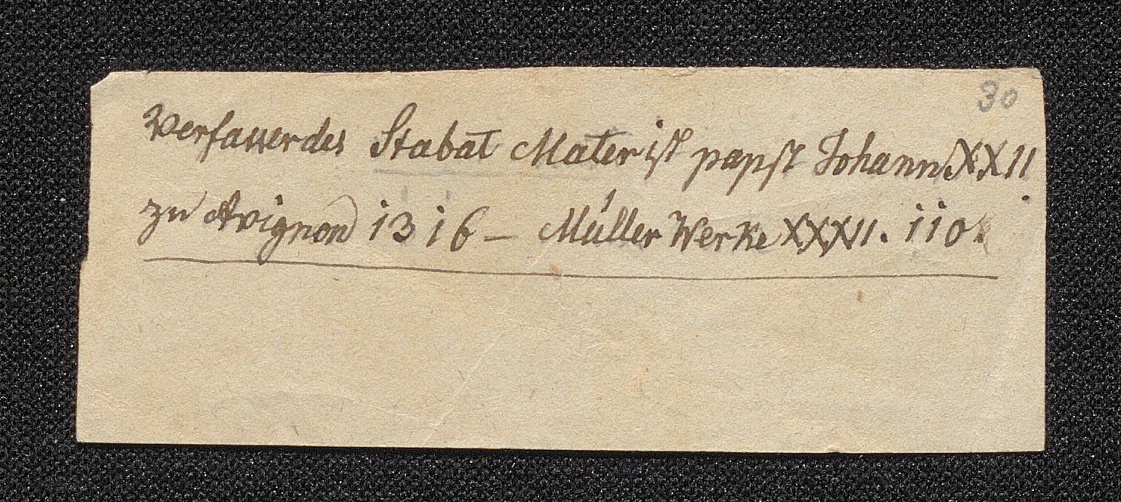 30
Verfasser des Stabat Mater ist papst Johann XXII
zu Avignon 1316 – Müller Werke XXXII. 110.